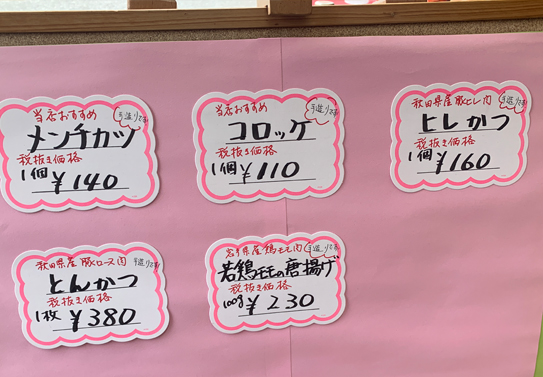 当店おすすめ
手造りです
メンチカツ
税抜き価格
1個 ¥140
当店おすすめ
手造りです
コロッケ
税抜き価格
1個 ¥110
秋田県産豚ヒレ肉
手造りです
ヒレかつ
税抜き価格
1個 ¥160
秋田県産豚ロース肉
手造りです
とんかつ
税抜き価格
1枚 ¥380
岩手県産鶏モモ肉
手造りです
若鶏モモの唐揚げ
税抜き価格
100g ¥230